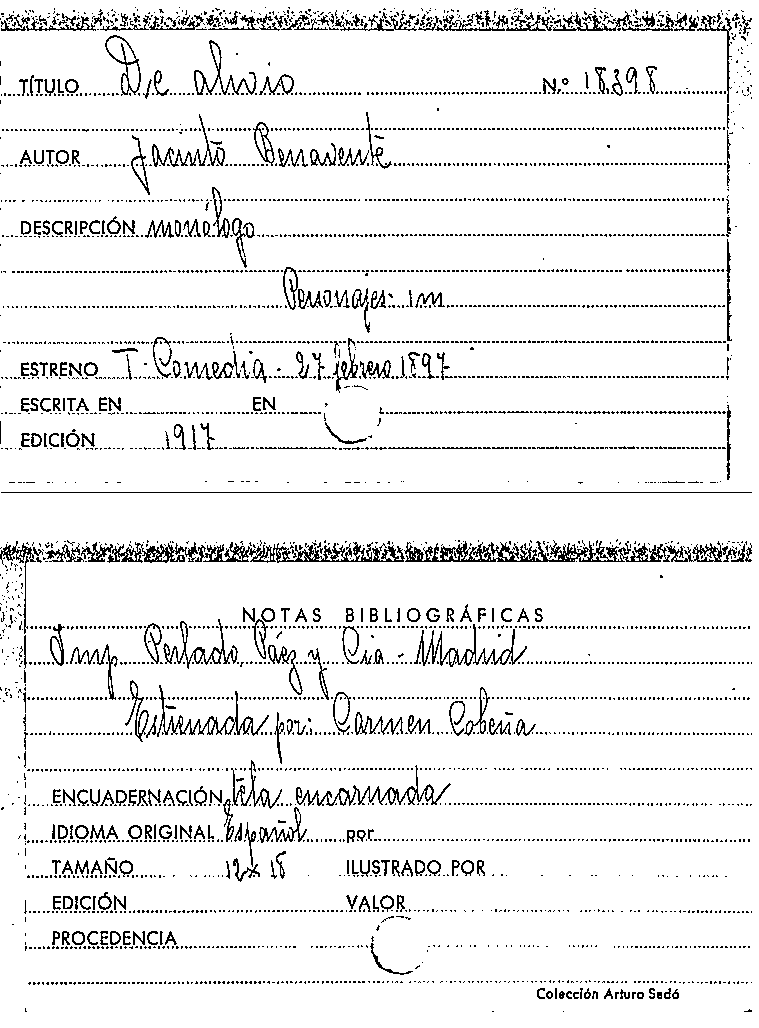 TÍTULO De alivio N.º 18398
AUTOR Jacinto Benavente
DESCRIPCIÓN monólogo
Personajes: 1m
ESTRENO T. Comedia - 27 febrero 1897
ESCRITA EN EN
EDICIÓN 1917
NOTAS BIBLIOGRÁFICAS
Imp. Perlado, Páez y Cia - Madrid
Estrenada por: Carmen Cobeña
ENCUADERNACIÓN tela encarnada
IDIOMA ORIGINAL Español por
TAMAÑO 12 x 18 ILUSTRADO POR
EDICIÓN VALOR
PROCEDENCIA
Colección Arturo Sedó